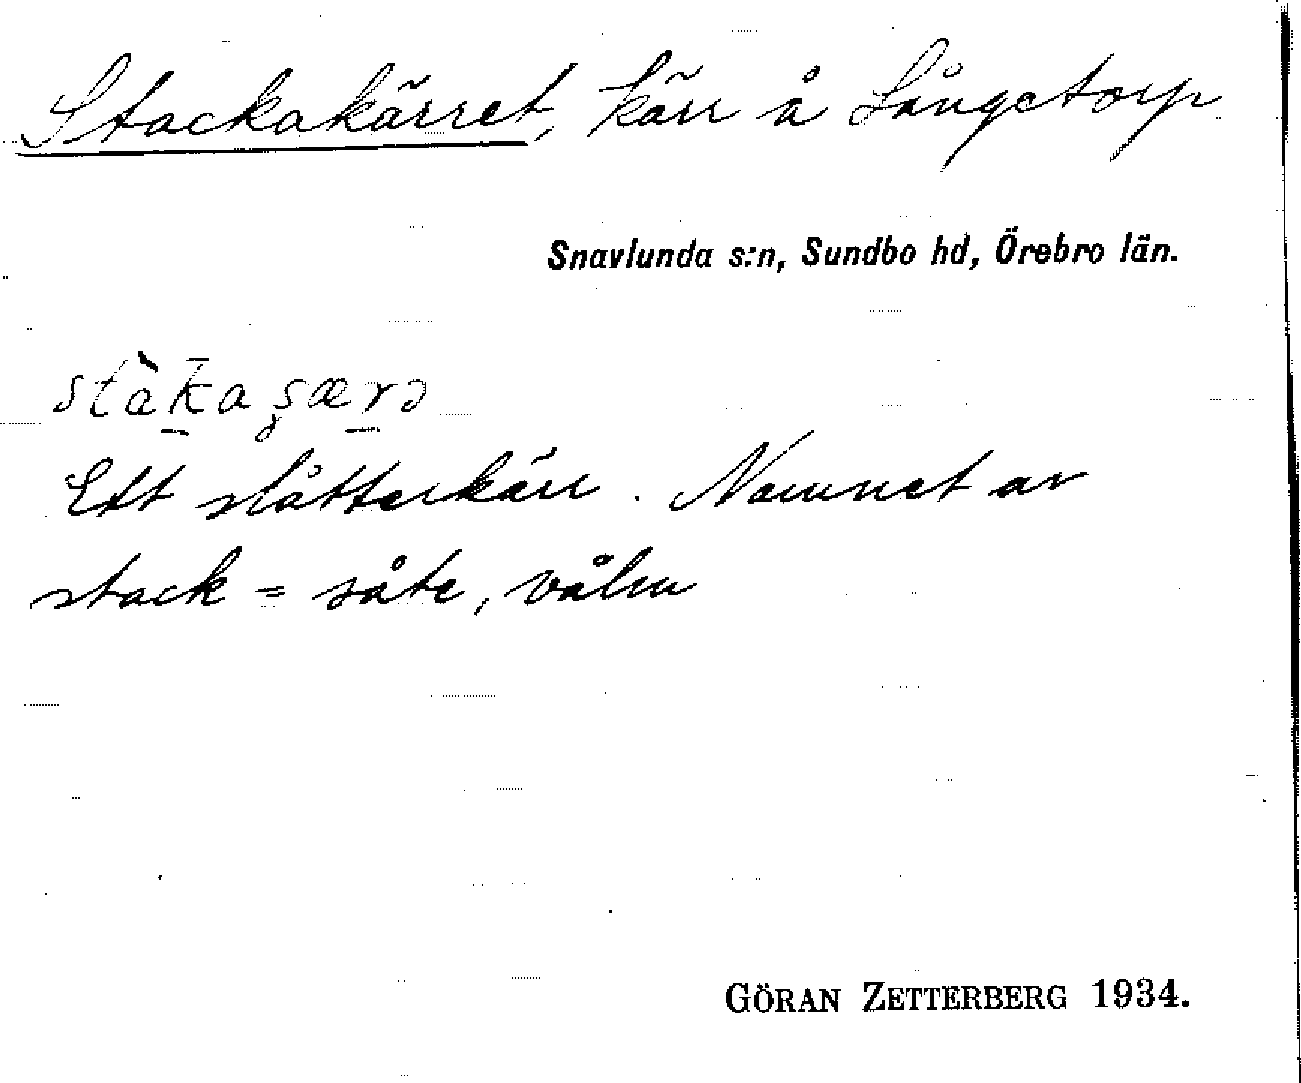 Stackakärret, kärr å Långetorp
Snavlunda s:n, Sundbo hd, Örebro län.
stàka ʂærə
Ett slåtterkärr. Namnet av
stack = såte, vålm
GÖRAN ZETTERBERG 1934.